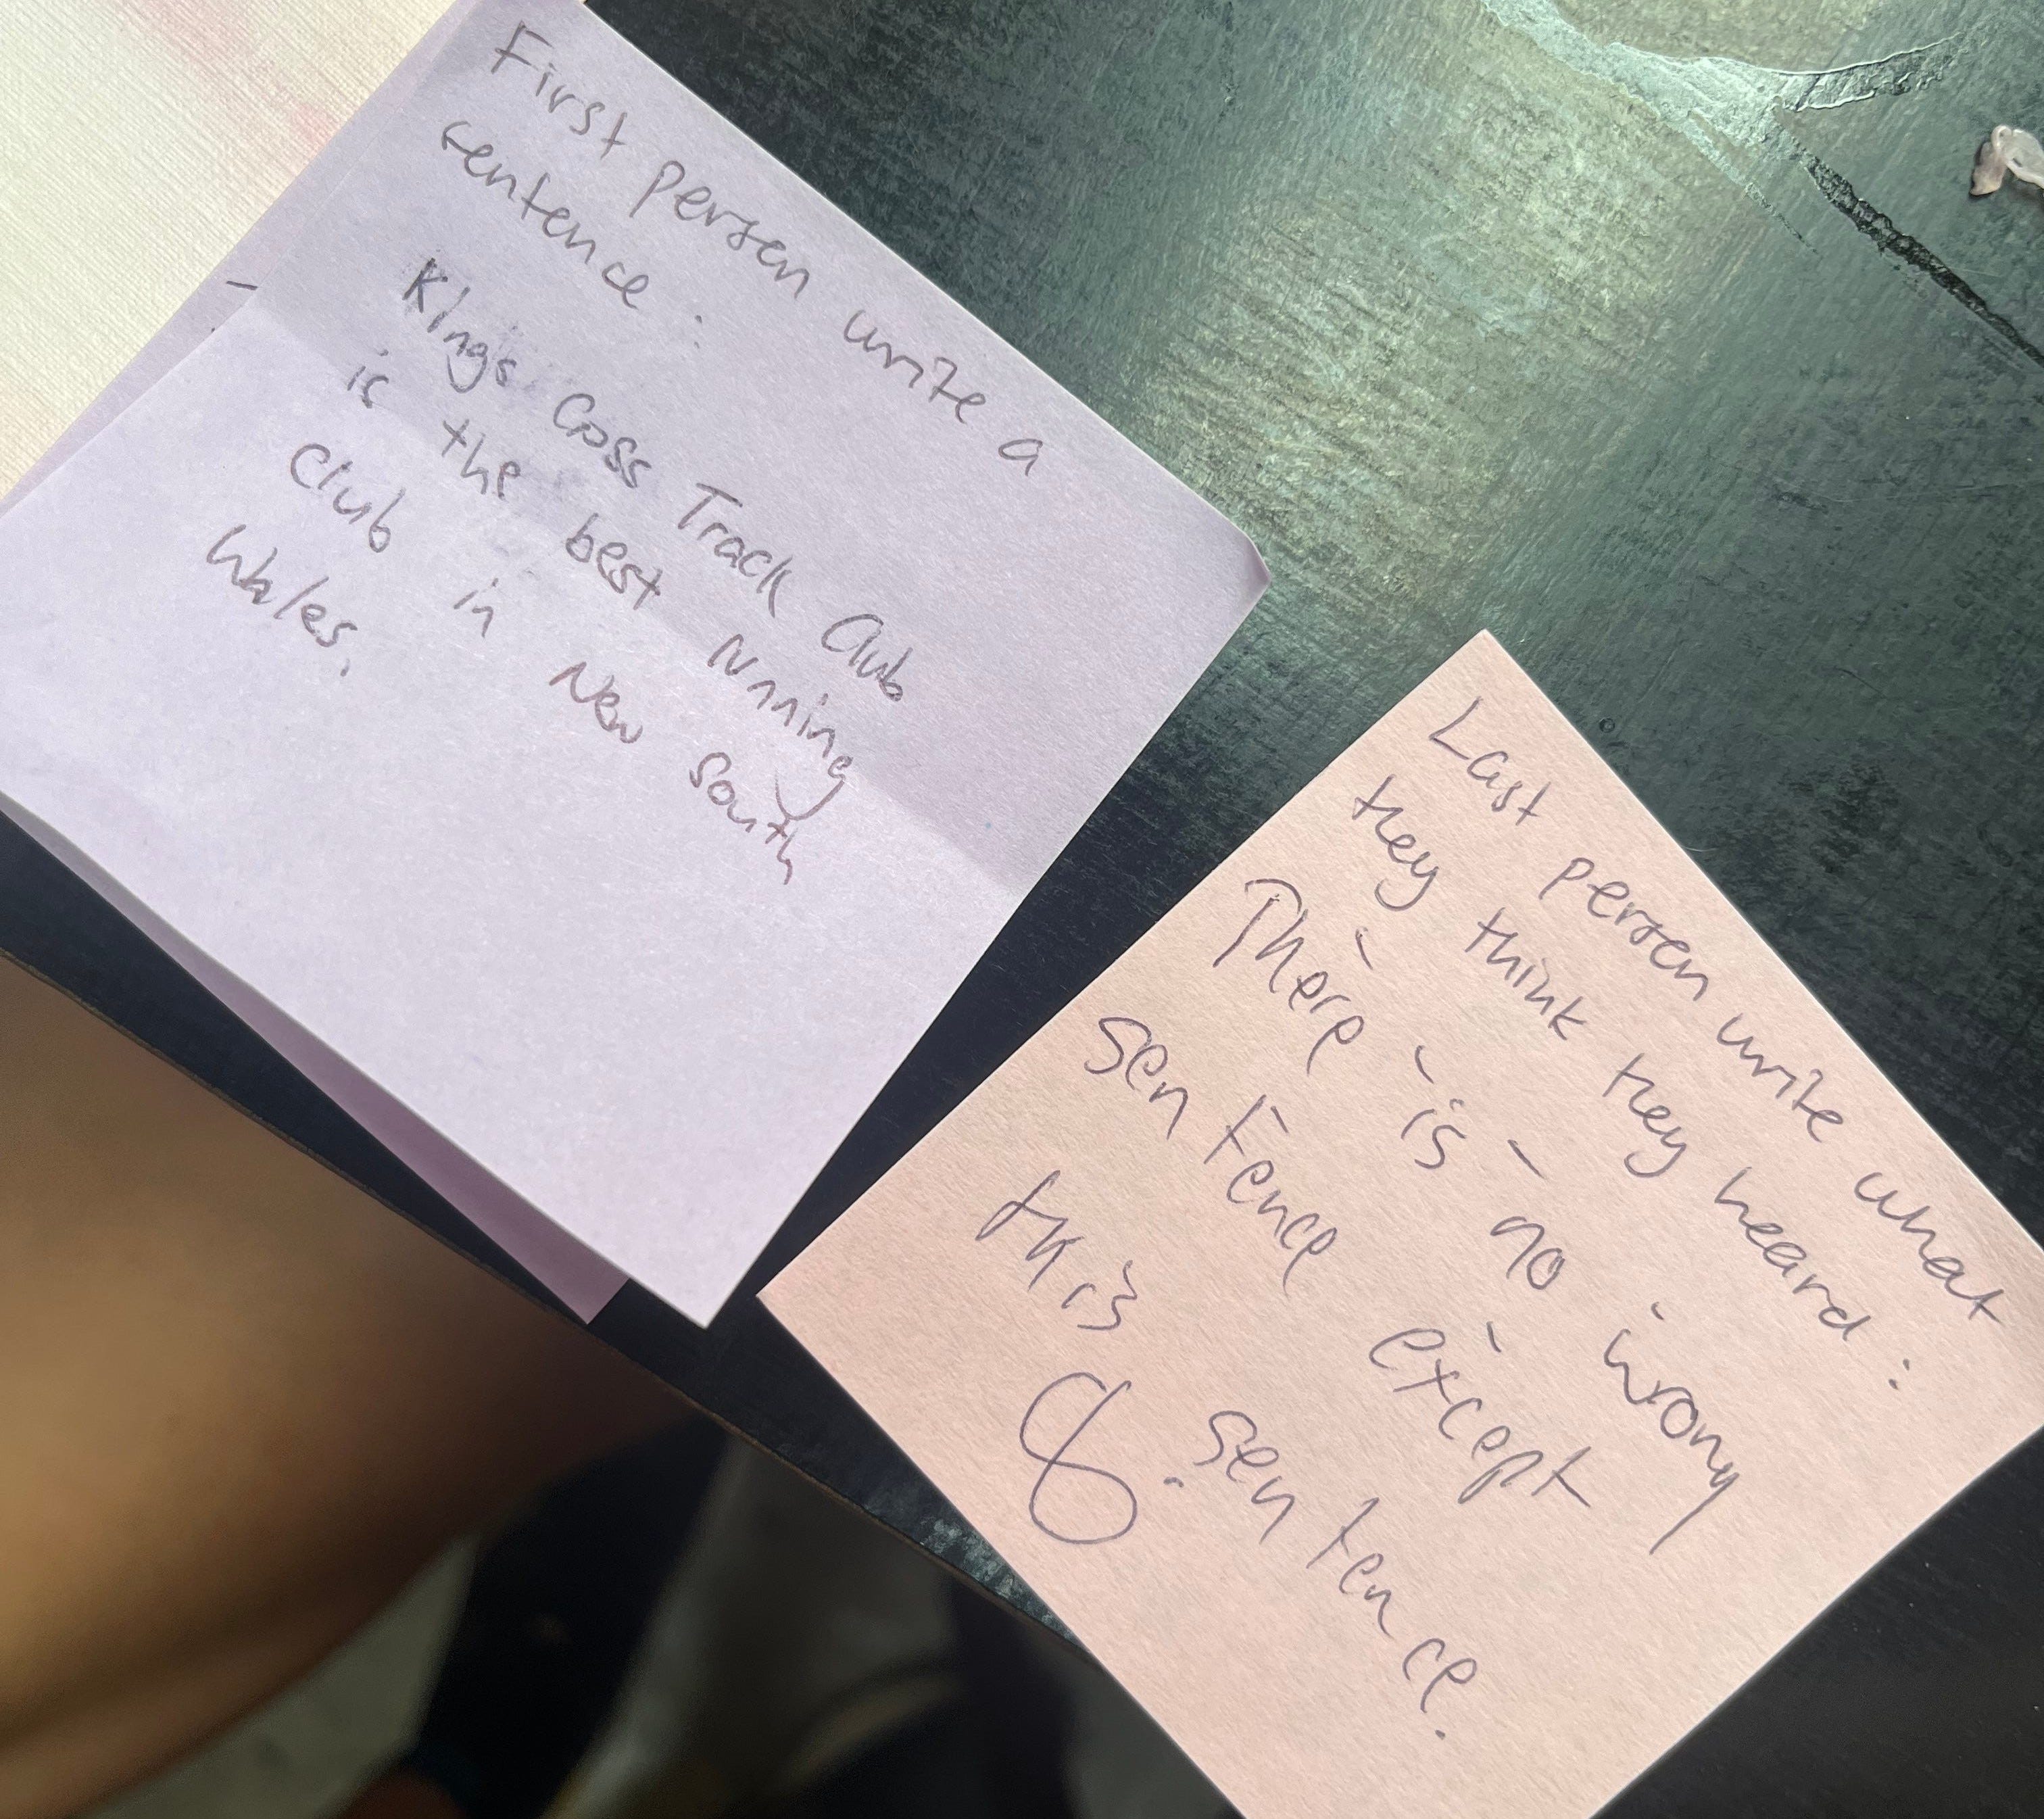 First person write a
sentence:
Kings Cross Track Club
is the best running
Club in New South
Wales.
Last person write what
they think they heard:
There is no wrong
sentence except
this sentence.